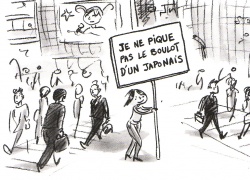 JE NE PIQUE
PAS LE BOULOT
D'UN JAPONAIS